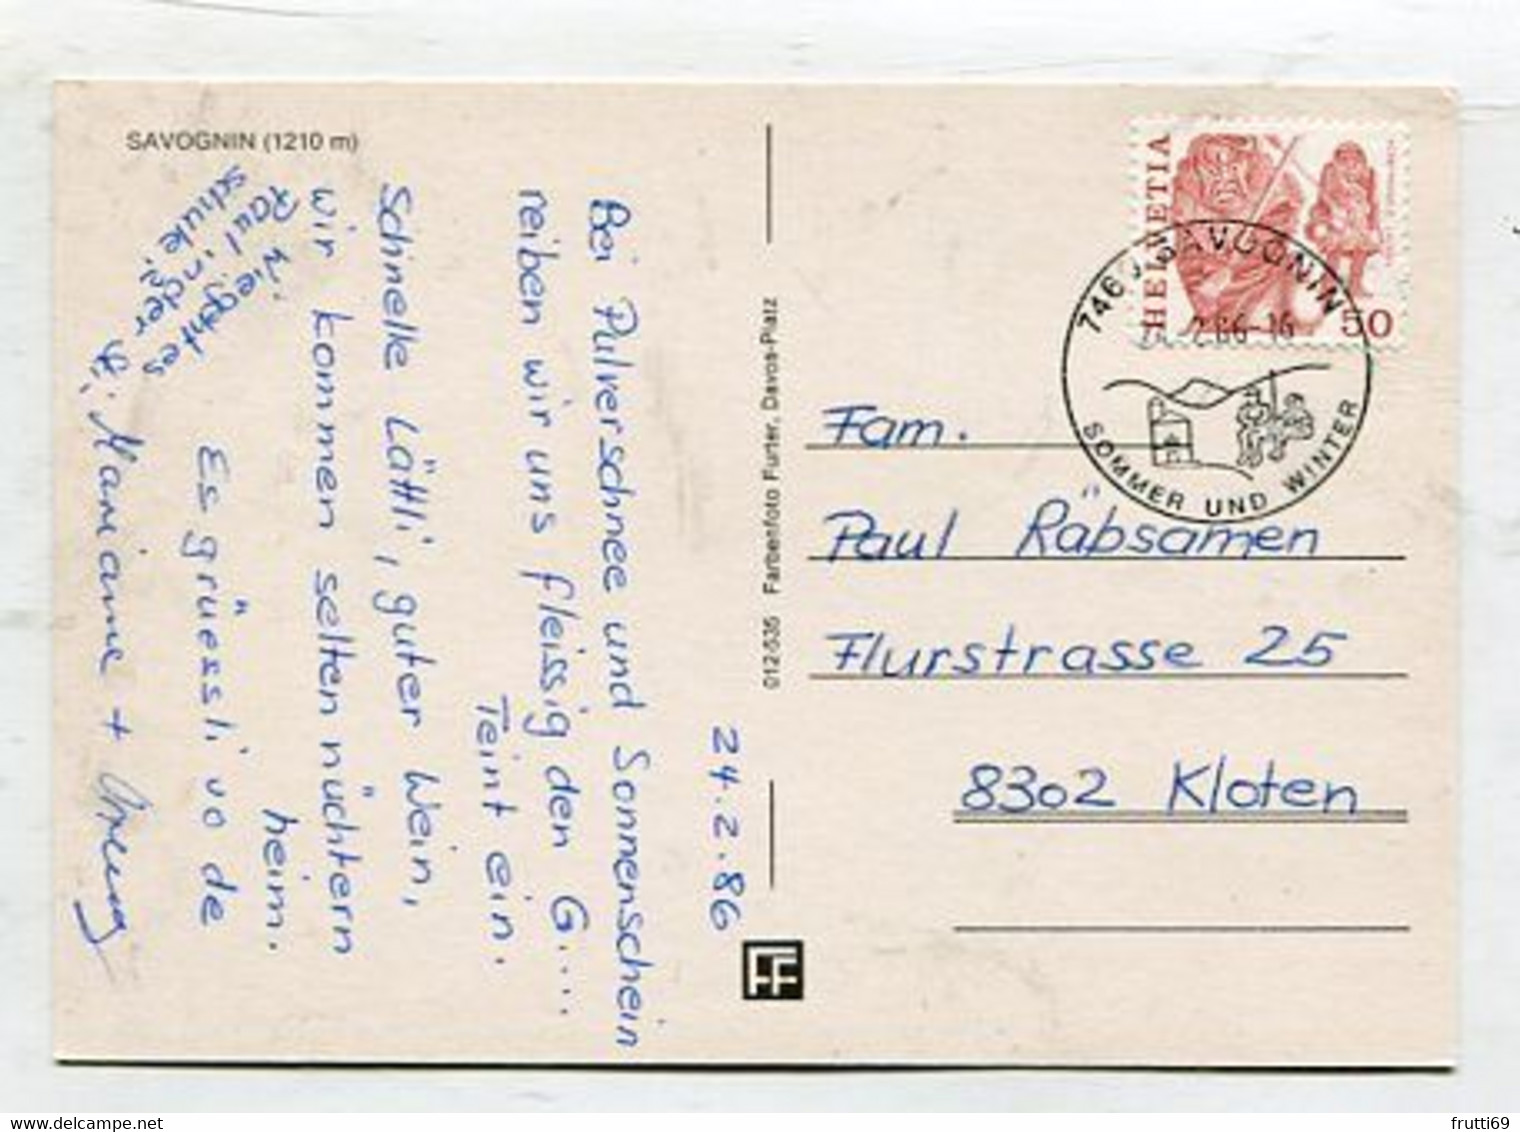 SAVOGNIN (1210 m)
24.2.86
Bei Pulverschnee und Sonnenschein
reiben wir uns fleissig den G....
Teint ein.
Schnelle Lättli, guter Wein,
wir kommen selten nüchtern
heim.
Es grüessli vo de
Mariann +
Paul wie gohtes
in der
Schule.
012-535 Farbenfoto Furter, Davos-Platz
FF
HELVETIA
50
7460 SAVOGNIN
2.86-16
SOMMER UND WINTER
Fam.
Paul Räbsamen
Flurstrasse 25
8302 Kloten
frutti69